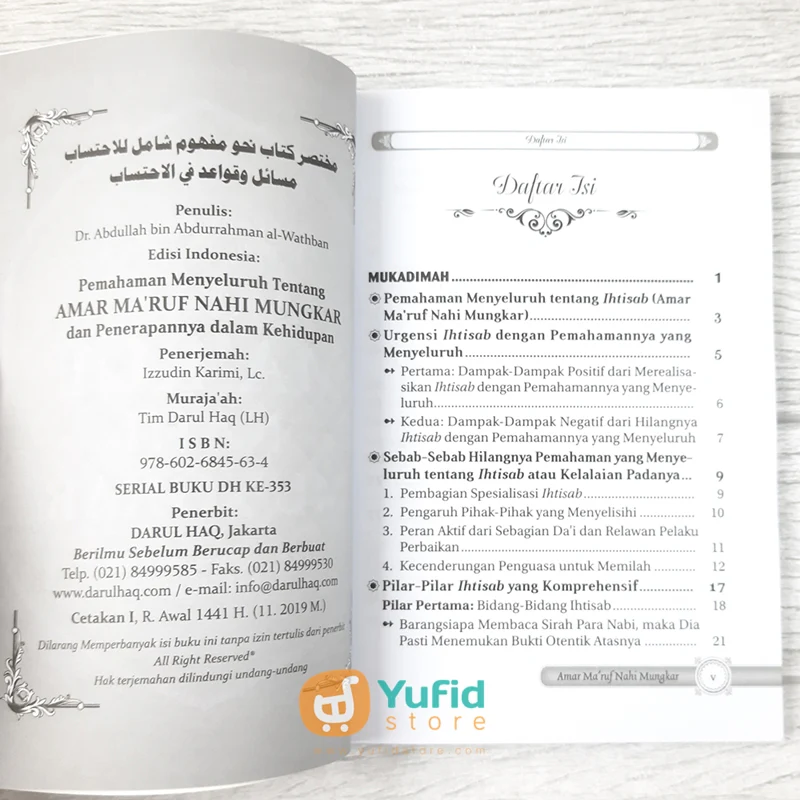 مختصر كتاب نحو مفهوم شامل للاحتساب
مسائل وقواعد في الاحتساب
Penulis:
Dr. Abdullah bin Abdurrahman al-Wathban
Edisi Indonesia:
Pemahaman Menyeluruh Tentang
AMAR MA'RUF NAHI MUNGKAR
dan Penerapannya dalam Kehidupan
Penerjemah:
Izzudin Karimi, Lc.
Muraja'ah:
Tim Darul Haq (LH)
I S B N:
978-602-6845-63-4
SERIAL BUKU DH KE-353
Penerbit:
DARUL HAQ, Jakarta
Berilmu Sebelum Berucap dan Berbuat
Telp. (021) 84999585 - Faks. (021) 84999530
www.darulhaq.com / e-mail: info@darulhaq.com
Cetakan I, R. Awal 1441 H. (11. 2019 M.)
Dilarang Memperbanyak isi buku ini tanpa izin tertulis dari penerbit
All Right Reserved®
Hak terjemahan dilindungi undang-undang
Daftar Isi
Daftar Isi
MUKADIMAH ........ 1
Pemahaman Menyeluruh tentang Ihtisab (Amar
Ma'ruf Nahi Mungkar) ........ 3
Urgensi Ihtisab dengan Pemahamannya yang
Menyeluruh ........ 5
Pertama: Dampak-Dampak Positif dari Merealisa-
sikan Ihtisab dengan Pemahamannya yang Menye-
luruh ........ 6
Kedua: Dampak-Dampak Negatif dari Hilangnya
Ihtisab dengan Pemahamannya yang Menyeluruh 7
Sebab-Sebab Hilangnya Pemahaman yang Menye-
luruh tentang Ihtisab atau Kelalaian Padanya... 9
1. Pembagian Spesialisasi Ihtisab ........ 9
2. Pengaruh Pihak-Pihak yang Menyelisihi ........ 10
3. Peran Aktif dari Sebagian Da'i dan Relawan Pelaku
Perbaikan ........ 11
4. Kecenderungan Penguasa untuk Memilah ........ 12
Pilar-Pilar Ihtisab yang Komprehensif ........ 17
Pilar Pertama: Bidang-Bidang Ihtisab ........ 18
Barangsiapa Membaca Sirah Para Nabi, maka Dia
Pasti Menemukan Bukti Otentik Atasnya ........ 21
Amar Ma'ruf Nahi Mungkar v
Yufid
store